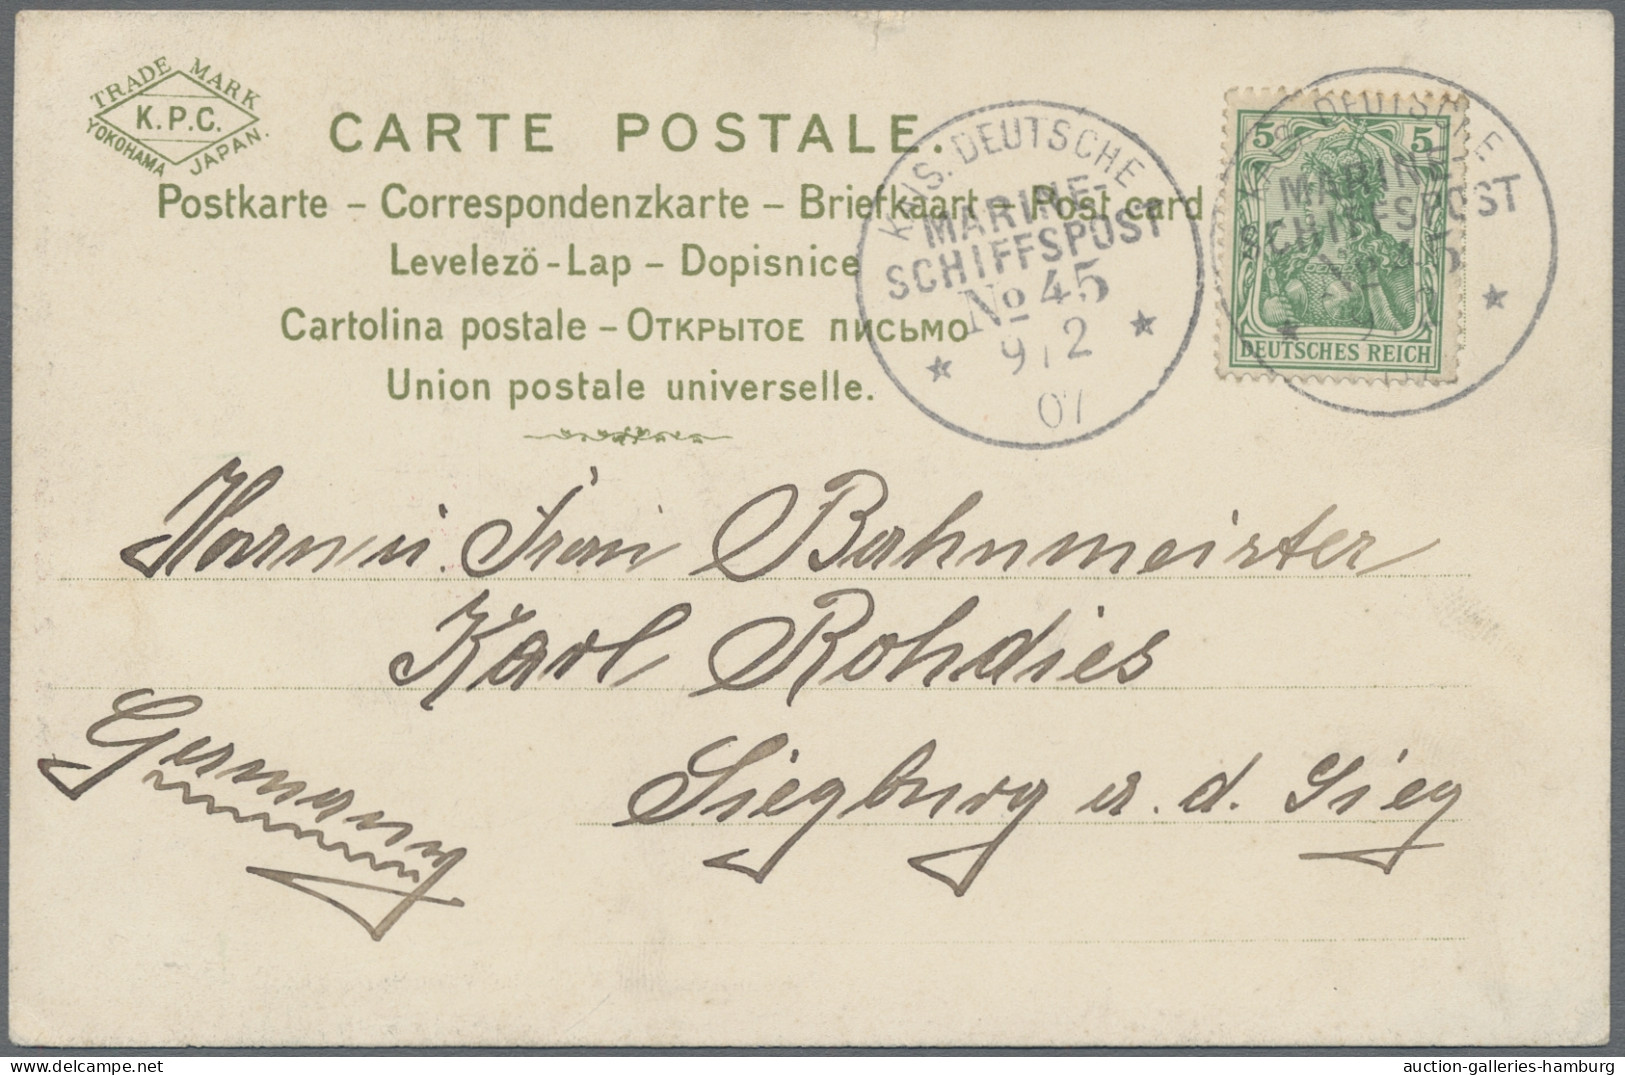 TRADE MARK
K.P.C.
YOKOHAMA JAPAN.
CARTE POSTALE.
Postkarte – Correspondenzkarte – Briefkaart – Post card
Levelezö-Lap – Dopisnice
Cartolina postale – Открытое письмо
Union postale universelle.
KAIS. DEUTSCHE
MARINE-
SCHIFFSPOST
No 45
9/2
07
5 5
DEUTSCHES REICH
KAIS. DEUTSCHE
MARINE-
SCHIFFSPOST
No 45
Frau Bahnmeister
Karl Rohdies
Siegburg a. d. Sieg
Germany
auction-galleries-hamburg